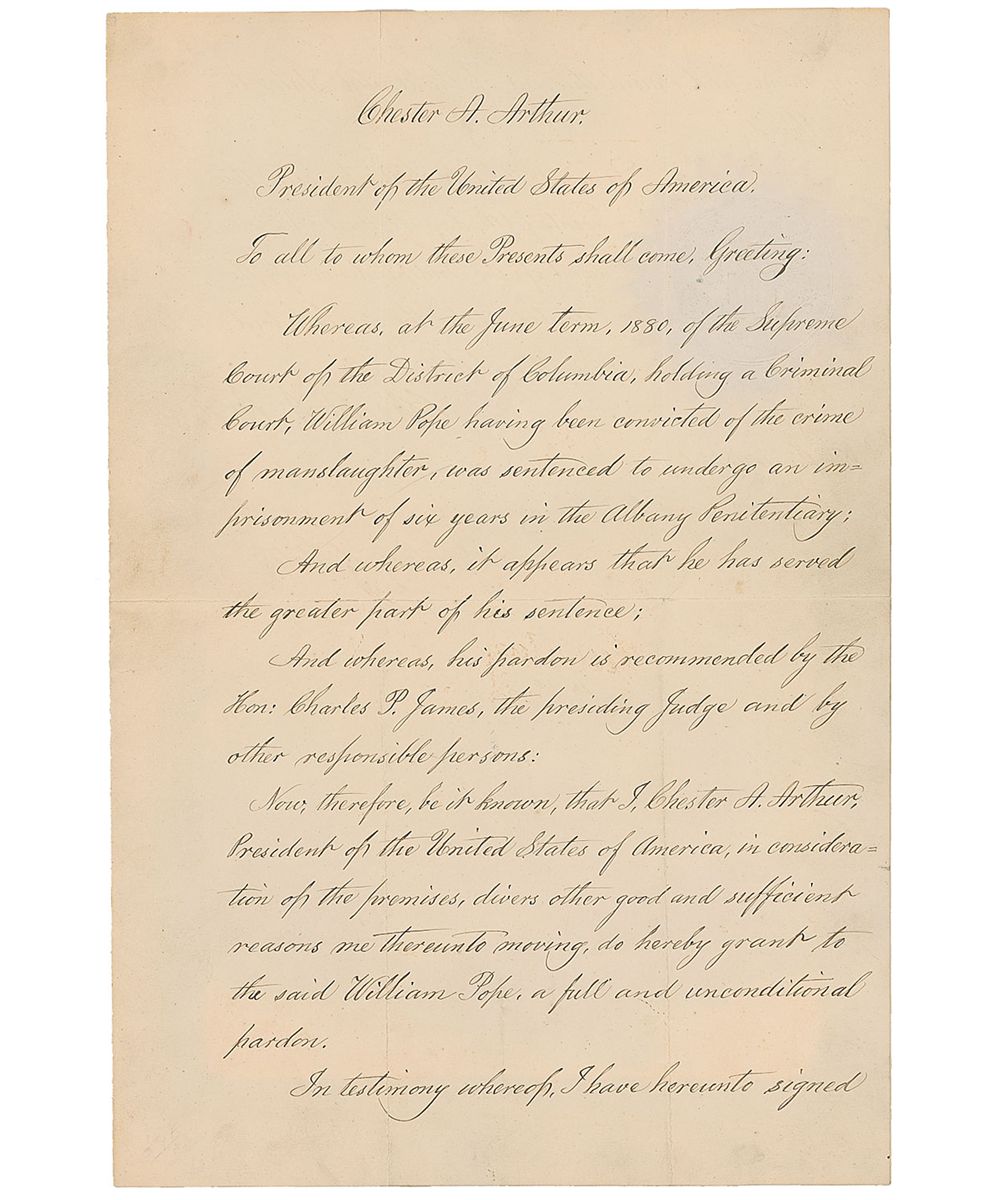 Chester A. Arthur.
President of the United States of America.
To all to whom these Presents shall come, Greeting:
Whereas, at the June term, 1880, of the Supreme
Court of the District of Columbia, holding a Criminal
Court, William Pope having been convicted of the crime
of manslaughter, was sentenced to undergo an im=
prisonment of six years in the Albany Penitentiary;
And whereas, it appears that he has served
the greater part of his sentence;
And whereas, his pardon is recommended by the
Hon: Charles P. James, the presiding Judge and by
other responsible persons:
Now, therefore, be it known, that I, Chester A. Arthur,
President of the United States of America, in considera=
tion of the premises, divers other good and sufficient
reasons me thereunto moving, do hereby grant to
the said William Pope, a full and unconditional
pardon.
In testimony whereof, I have hereunto signed